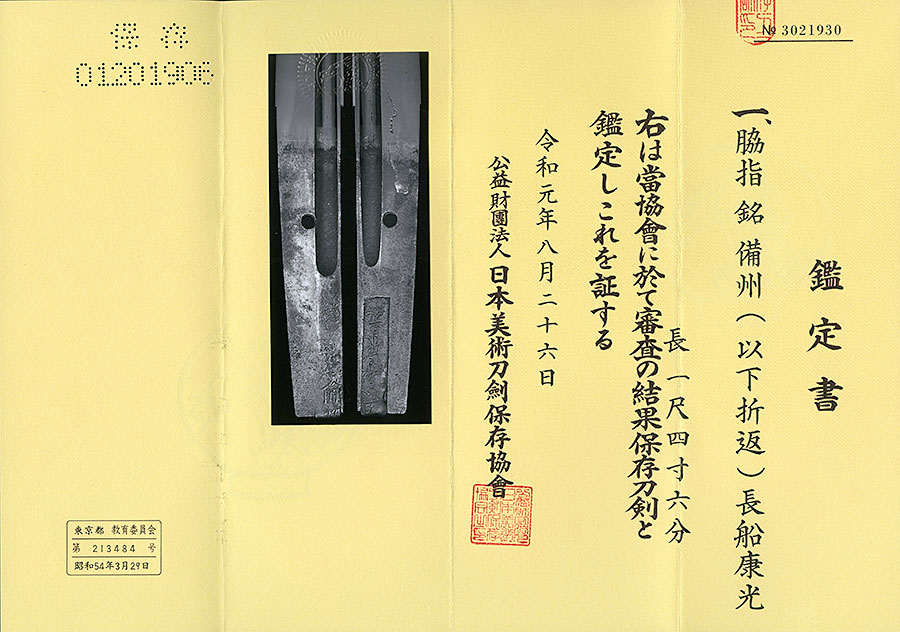 № 3021930
鑑定書
一、脇指 銘 備州(以下折返)長船康光
長 一尺四寸六分
右は當協會に於て審査の結果保存刀剣と
鑑定しこれを証する
令和元年八月二十六日
公益財團法人 日本美術刀劍保存協會
保存
01201906
東京都 教育委員会
第 213484 号
昭和54年3月29日